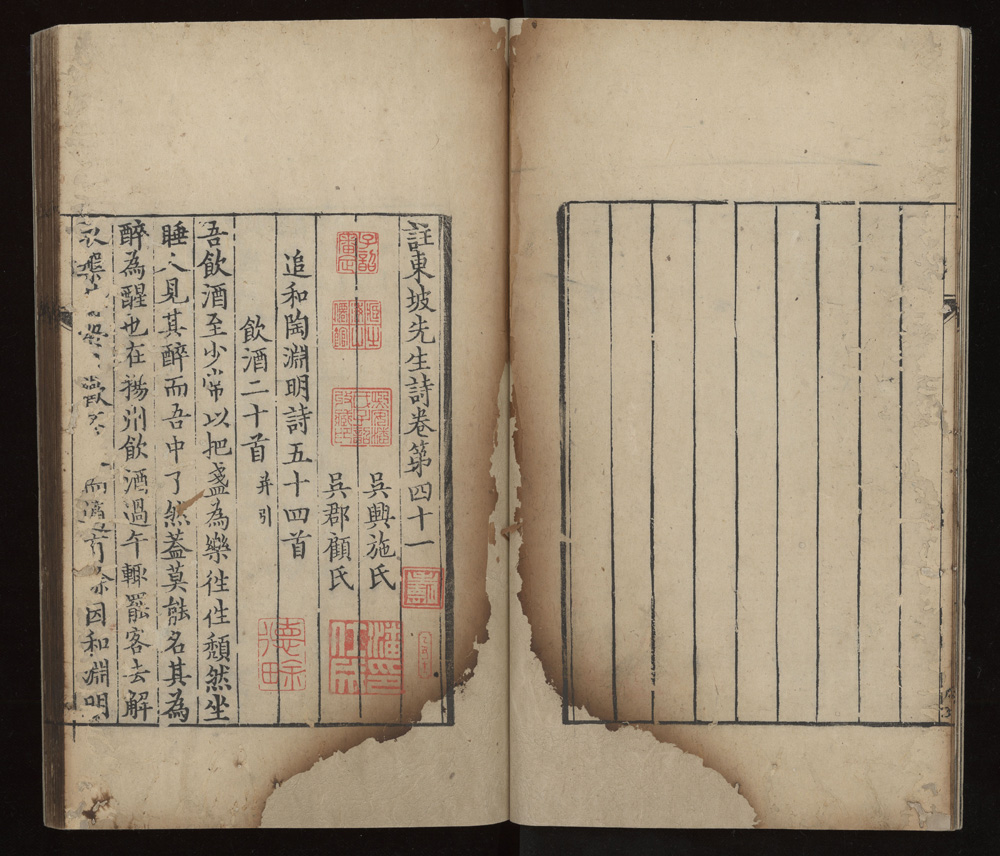 註東坡先生詩卷第四十一
吳興施氏
吳郡顧氏
追和陶淵明詩五十四首
飲酒二十首 并引
吾飲酒至少常以把盞為樂往往頹然坐
睡人見其醉而吾中了然蓋莫能名其為
醉為醒也在揚州飲酒過午輒罷客去解
衣槃歡不而適有餘因和淵明
德畬